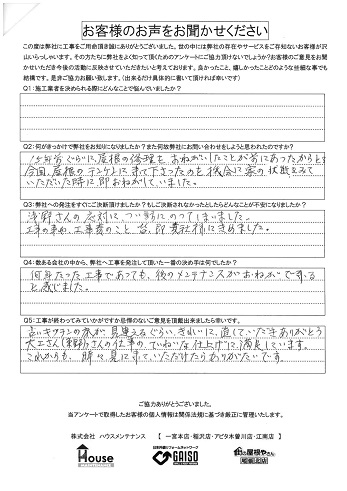 お客様のお声をお聞かせください
この度は弊社に工事をご用命頂き誠にありがとうございました。世の中には弊社の存在やサービスをご存知ないお客様が沢
山いらっしゃいます。その方たちに弊社をよく知って頂くためのアンケートにご協力頂けないでしょうか?お客様のご意見をお聞
かせいただき今後の活動に反映させていただきたいと考えております。良かったこと、嬉しかったことどのような些細な事でも
結構です。是非ご協力お願い致します。(出来るだけ具体的に書いて頂ければ幸いです)
Q1:施工業者を決められる際にどんなことで悩んでいましたか?
Q2:何がきっかけで弊社をお知りになりましたか?また何故弊社にお問い合わせをしようと思われたのですか?
15年前ぐらいに、屋根の修理を おねがいしたことが
今回、屋根の テンケンに来て下さったのを機会に家の状態をみて
いただいた時に即おねがいしました。
Q3:弊社への発注をすぐにご決断頂けましたか?もしご決断されなかったとしたらどんなことが不安になりましたか?
さんの応対に、つい
工事の事や、工事費のこと
Q4:数ある会社の中から、弊社に工事を発注して頂いた一番の決め手は何でしたか?
何年たった工事であっても、後のメンテナンスがおねがいできる
と感じました。
Q5:工事が終わってみていかがですか忌憚のないご意見を頂戴出来ましたら幸いです。
古いキッチンの 見違えるぐらい、きれいに、直していただきありがとう
大工さんの仕事の、ていねいな仕上げに満足しています。
これからも、時々、見に来ていただけたらありがたいです。
ご協力ありがとうございました。
当アンケートで取得したお客様の個人情報は関係法規に基づき厳正に管理いたします。
株式会社 ハウスメンテナンス 【 一宮本店・稲沢店・アピタ木曽川店・江南店 】
House
MAINTENANCE
GAISO
街の屋根やさん